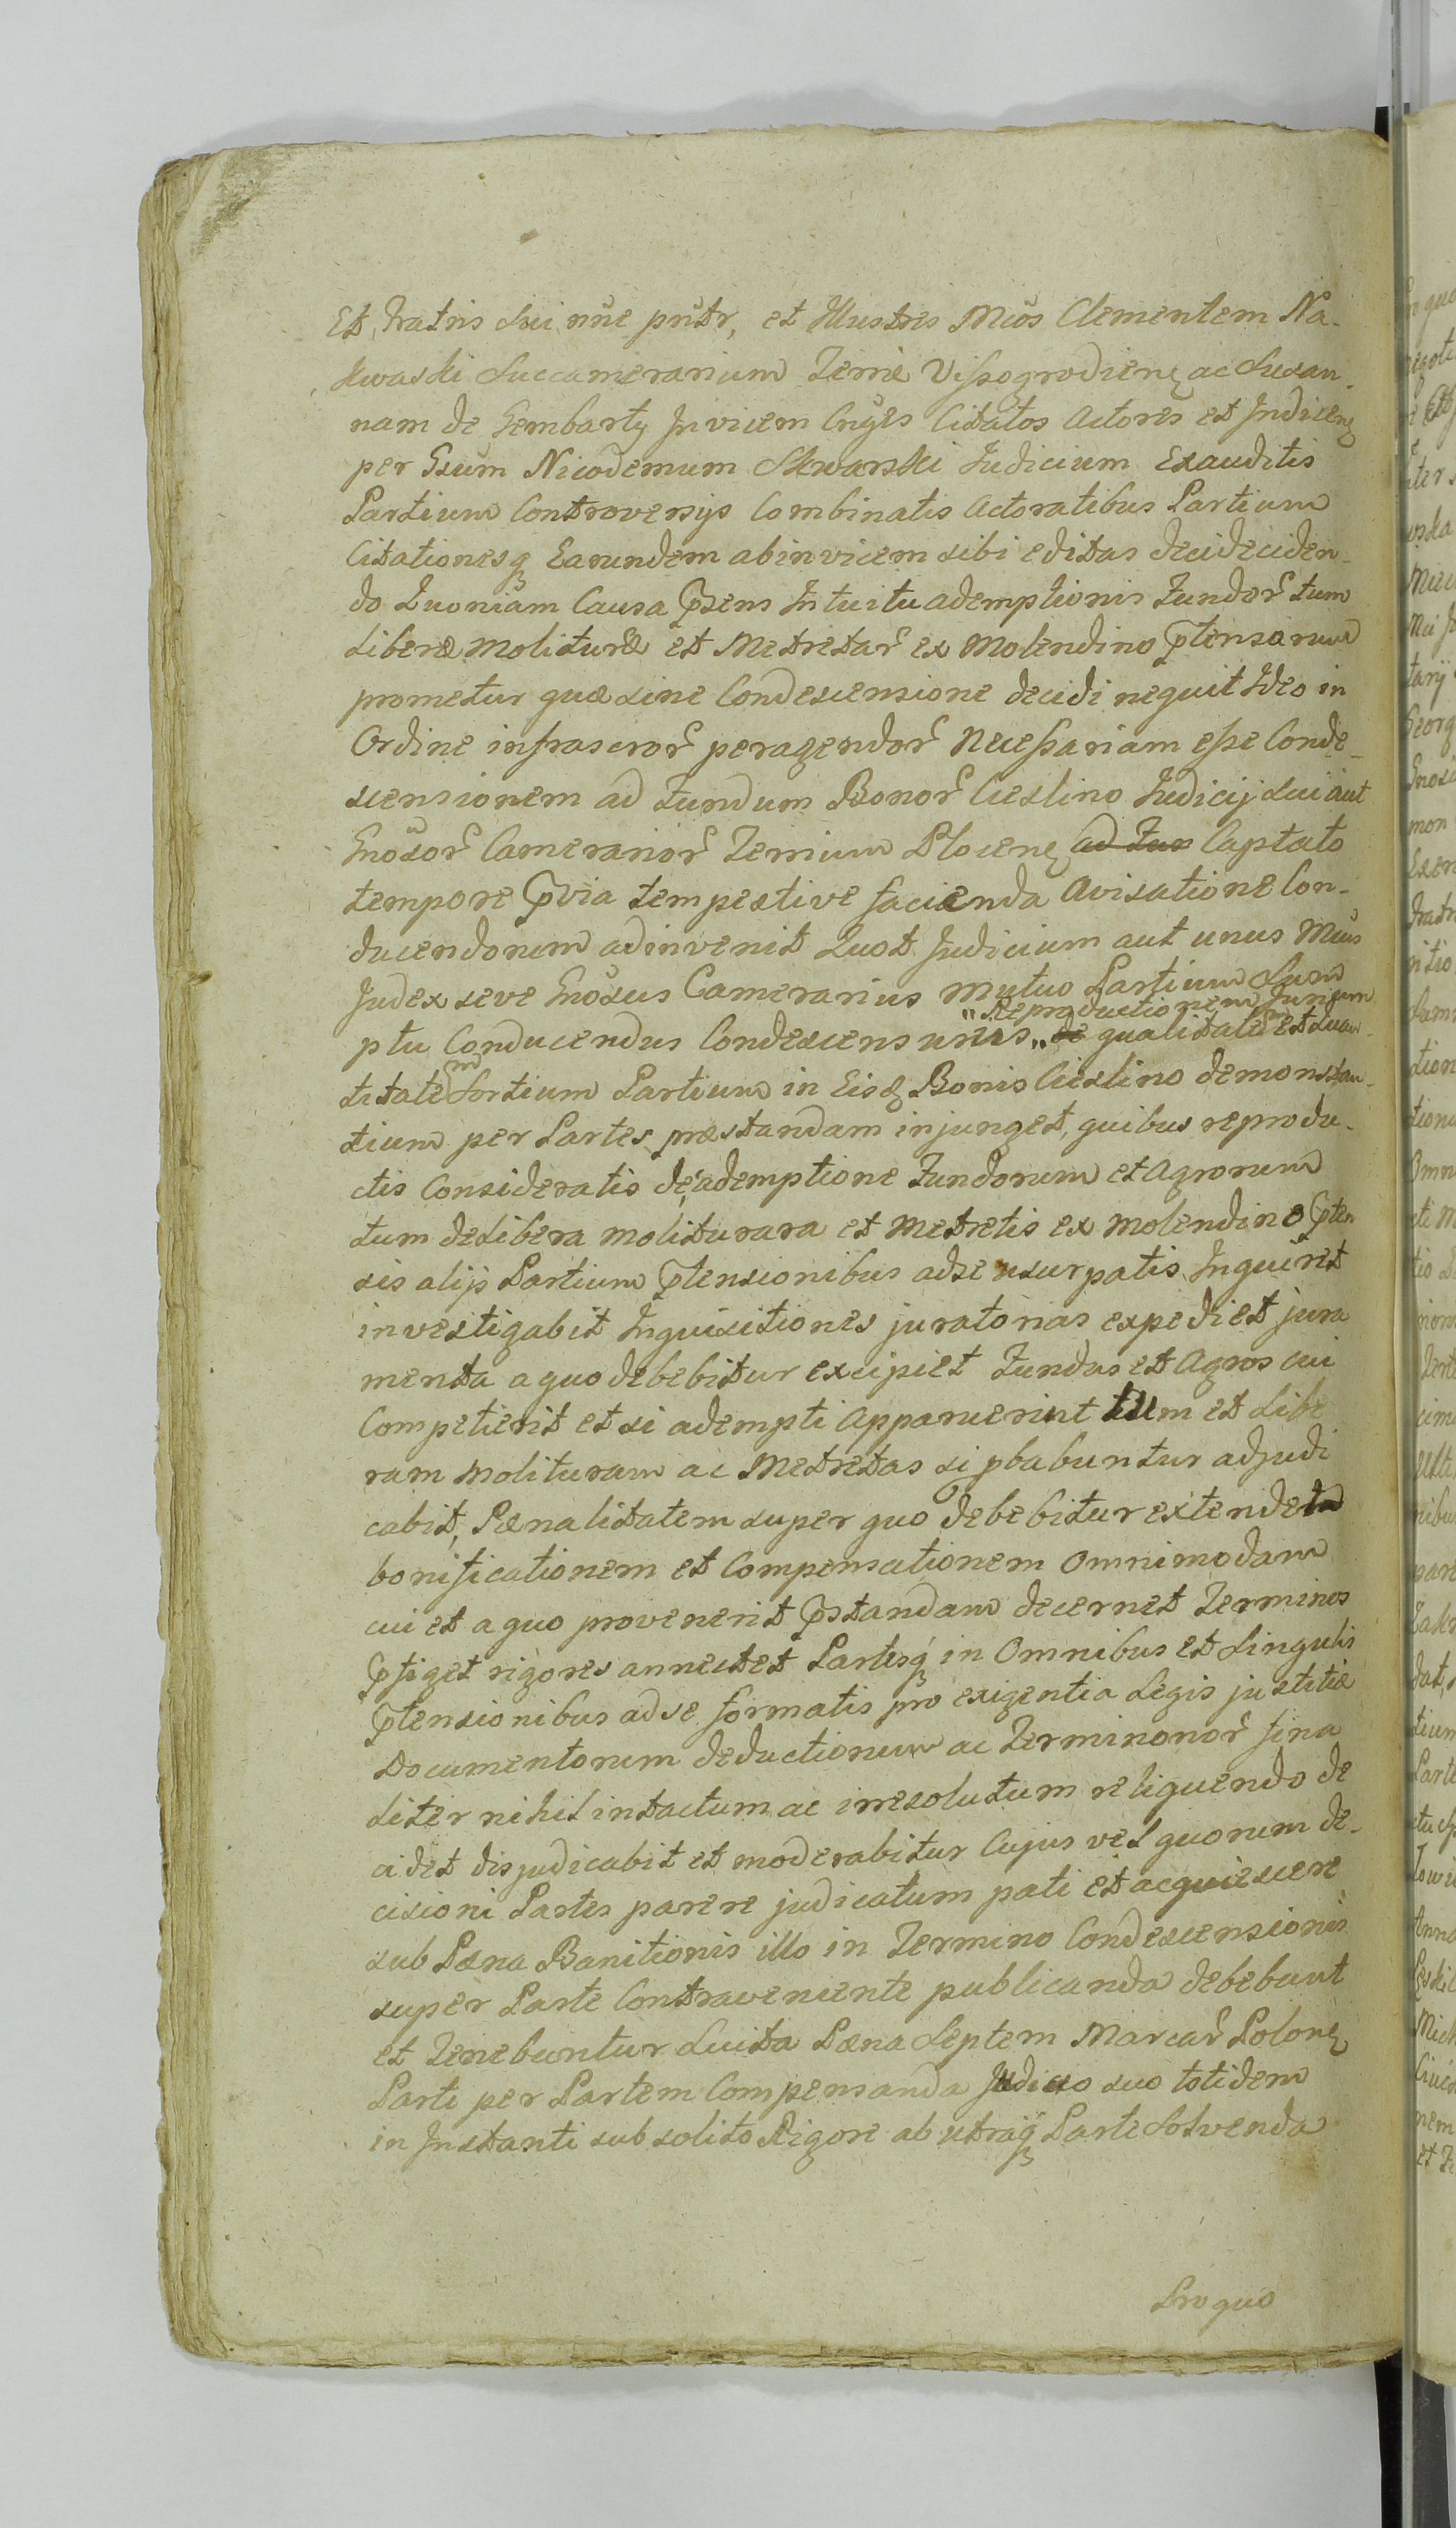 Et Fratris Sui nue pntr, et Illustres Mcos Clementem Na-
kwaski Succamerarium Terræ Vissogrodiens ac Susan-
nam de Gembarty Invicem Cnges Citatos Actores et Indicen
per Gsum Nicodemum Skwarski Judicium Exauditis
Partium Controversijs Combinatis Actoratibus Partium
Citationesq Earundem abinvicem sibi editas decideciden-
do Quoniam Causa Psens Intuitu ademptionis Fundor tum
liberæ molituræ et Metretar ex Molendino Ptensarum
prometur quæ sine Condescensione decidi nequit Ideo in
Ordine infrascror peragendor Necessariam esse Conde-
scensionem ad Fundum Bonor Cieslino Judicij Sui aut
Gnosor Camerarior Terrium Plocens ad Fun Captato
tempore Pvia tempestive facienda Avisatione Con-
ducendorum adinvenit Quot Judicium aut unus Mcus
Judex seve Gnosus Camerarius mutuo Partium Sum
ptu Conducendus Condescensurus „ de qualitate et Quan-
„ Reproductionem Jurium
titatem Sortium Partium in Eisq Bonis Cieslino demonstan-
tium per Partes præstandam injunget, quibus reprodu-
ctis Consideratis de ademptione Fundorum et Agrorum
tum de libera moliturara et Metretis ex Molendino Pten
sis alijs Partium Ptensionibus ad se usurpatis Inquiret
investigabit Inquisitiones juratorias expediet jura
menta a quo debebitur excipiet Fundus et Agros cui
Competierit et si adempti Apparuerint tum et Libe
ram molituram ac Metretas si pbabuntur adjudi
cabit, Pænalitatem super quo debebitur extendet
bonificationem et Compensationem Omnimodam
cui et a quo provenerit Pstandam decernet Terminos
Pfiget rigores annectet Partesq in Omnibus et Singulis
Ptensionibus ad se formatis pro exigentia Legis justitiæ
Documentorum deductionum ac Terminonor fina
liter nihil intactum ac irresolutum reliquendo de
cidet disjudicabit et moderabitur Cujus vel quorum de-
cisioni Partes parere judicatum pati et acquiescere
sub Pæna Banitionis illo in Termino Condescensionis
super Parte Contraveniente publicanda debebunt
et Tenebuntur Luita Pæna Septem Marcar Polon
Parti per Partem Compensanda Judicio suo totidem
in Instanti sub solito Rigore ab utraq Parte Solvenda
Pro quo